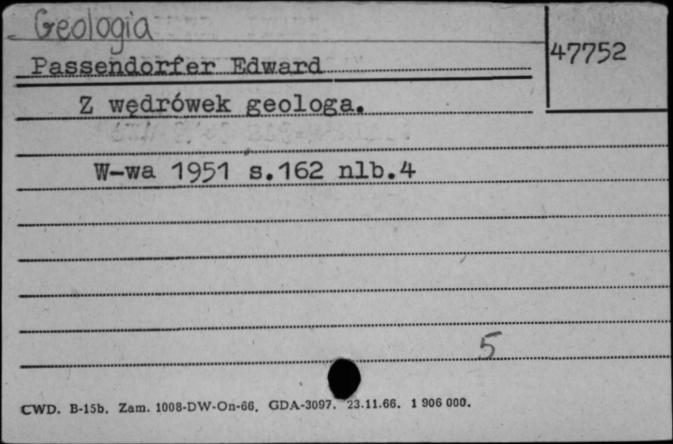 Geologia
47752
Passendorfer Edward
Z wędrówek geologa.
W-wa 1951 s.162 nlb.4
5
CWD. B-15b. Zam. 1008-DW-On-66. GDA-3097. 23.11.66. 1 906 000.